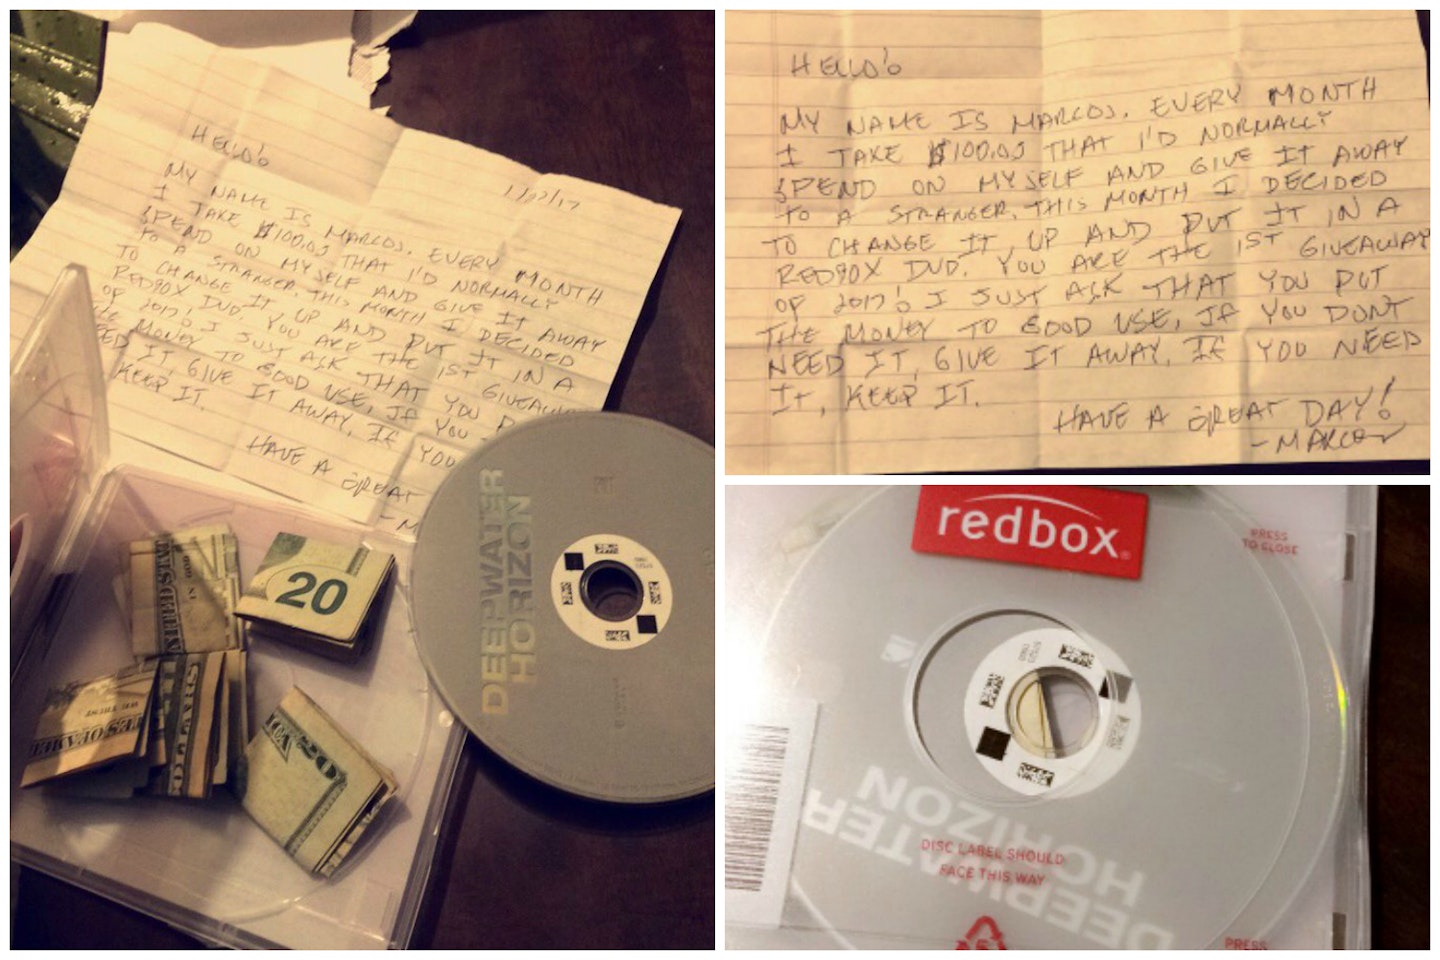 HELLO!
1/7/17
MY NAME IS MARCOS. EVERY MONTH
I TAKE $100.00 THAT I'D NORMALLY
SPEND ON MYSELF AND GIVE IT AWAY
TO A STRANGER. THIS MONTH I DECIDED
TO CHANGE IT UP AND PUT IT IN A
REDBOX DVD. YOU ARE THE 1ST GIVEAWAY
OF 2017! I JUST ASK THAT YOU PUT
THE MONEY TO GOOD USE, IF YOU DONT
NEED IT, GIVE IT AWAY. IF YOU NEED
IT, KEEP IT.
HAVE A GREAT
DEEPWATER
HORIZON
20
HELLO!
MY NAME IS MARCOS. EVERY MONTH
I TAKE $100.00 THAT I'D NORMALLY
SPEND ON MYSELF AND GIVE IT AWAY
TO A STRANGER. THIS MONTH I DECIDED
TO CHANGE IT UP AND PUT IT IN A
REDBOX DVD. YOU ARE THE 1ST GIVEAWAY
OF 2017! I JUST ASK THAT YOU PUT
THE MONEY TO GOOD USE, IF YOU DONT
NEED IT, GIVE IT AWAY. IF YOU NEED
IT, KEEP IT.
HAVE A GREAT DAY!
-MARCOS
redbox
PRESS
TO CLOSE
DEEPWATER
HORIZON
DISC LABEL SHOULD
FACE THIS WAY
PRESS